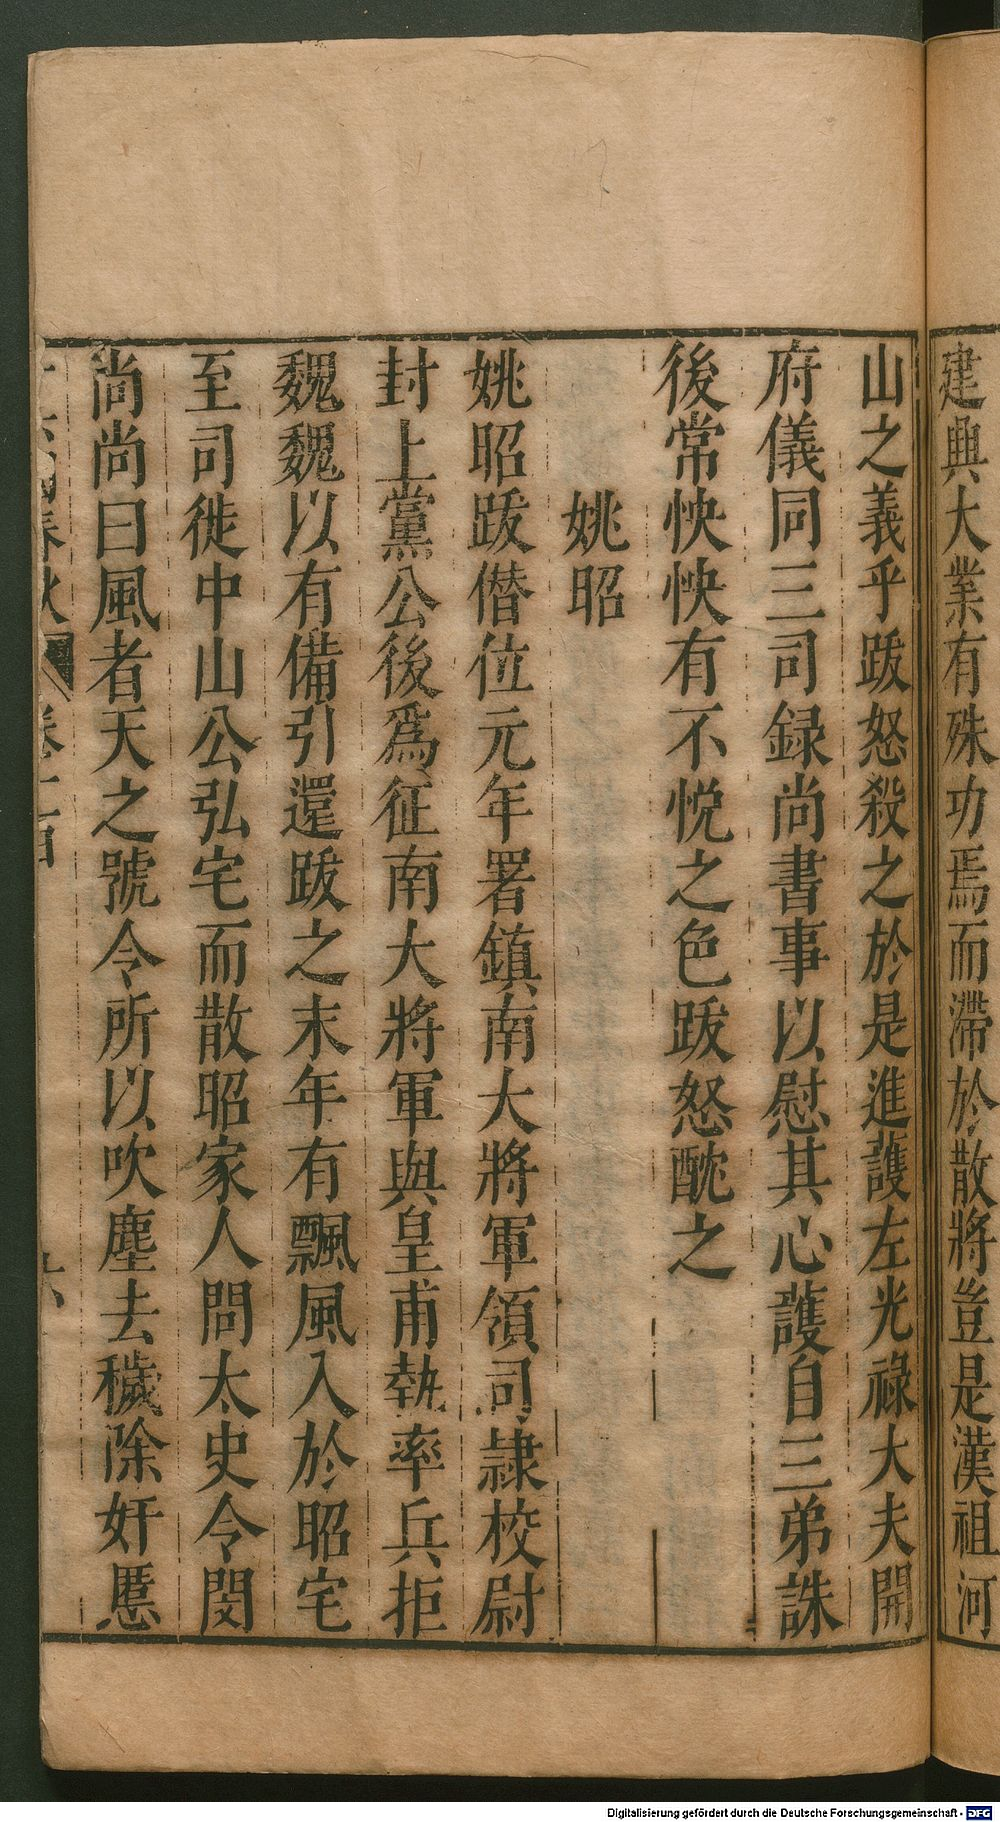 建興大業有殊功焉而滯於散將豈是漢祖河
山之義乎跋怒殺之於是進護左光祿大夫開
府儀同三司録尚書事以慰其心護自三弟誅
後常怏怏有不悅之色跋怒酖之
姚昭
姚昭跋僭位元年署鎮南大將軍領司隷校尉
封上黨公後爲征南大將軍與皇甫執率兵拒
魏魏以有備引還跋之末年有飄風入於昭宅
至司徙中山公弘宅而散昭家人問太史令閔
尚尚曰風者天之號令所以吹塵去穢除奸慝
春秋
Digitalisierung gefördert durch die Deutsche Forschungsgemeinschaft - DFG